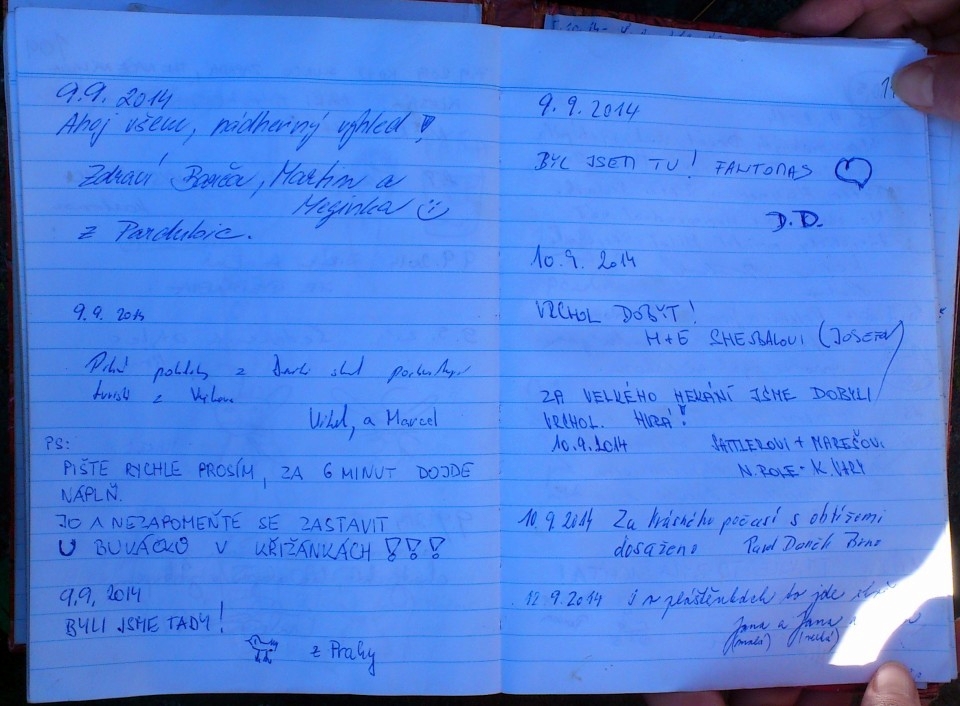 9.9. 2014
Ahoj všem, nádherný výhled!
Zdraví Barča, Martin a
Meginka
z Pardubic.
9.9.
a Marcel
PS:
PIŠTE RYCHLE PROSÍM, ZA 6 MINUT DOJDE
NÁPLŇ.
JO A NEZAPOMEŇTE SE ZASTAVIT
U BUVÁČKŮ V KŘIŽÁNKÁCH !!!
9.9. 2014
BYLI JSME TADY!
z Prahy
9.9.2014
BYL JSEM TU! FANTOMAS
D.D.
10.9. 2014
VRCHOL DOBYT!
M+E
ZA VELKÉHO JSME DOBYLI
VRCHOL. HURÁ!
10.9.2014
N.ROLE - K.VARY
10.9.2014 Za krásného počasí s obtížemi
dosaženo Pavel Brno
12.9.2014 I v pláštěnkách to jde
Jana a Jana
(malá) (velká)